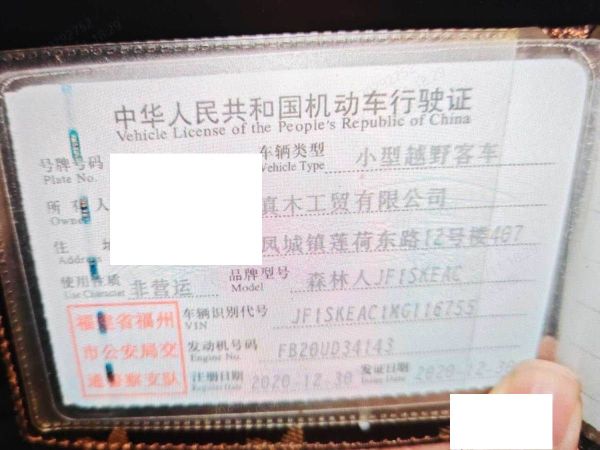 中华人民共和国机动车行驶证
Vehicle License of the People's Republic of China
号牌号码 车辆类型 小型越野客车
Plate No. Vehicle Type
所 人 真木工贸有限公司
Owner
住 凤城镇莲荷东路12号楼467
Address
使用性质 非营运 品牌型号 森林人JF1SKEAC
Use Character Model
车辆识别代号 JF1SKEAC1MG116755
VIN
发动机号码 FB20UD34143
Engine No.
注册日期 2020-12-30 发证日期 2020-12-30
Register Date Issue Date
福建省福州
市公安局交
通警察支队